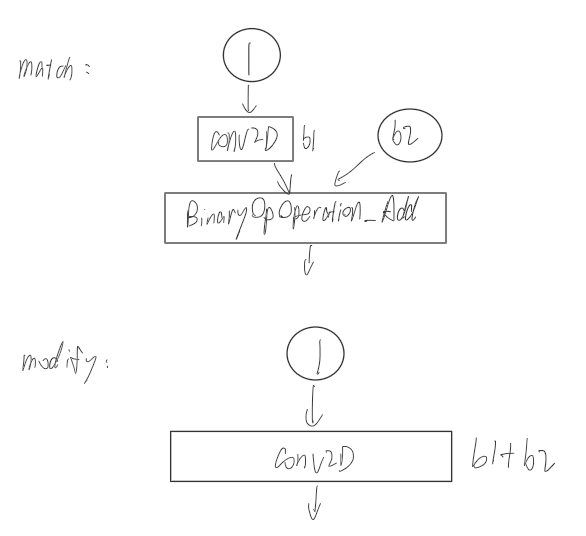 match:
1
conv2D b1
b2
BinaryOpOperation_Add
modify:
1
conv2D b1+b2